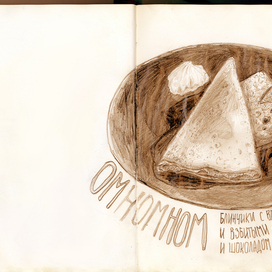 ОМНОМНОМ
БЛИНЧИКИ С
И ВЗБИТЫМИ
И ШОКОЛАДОМ